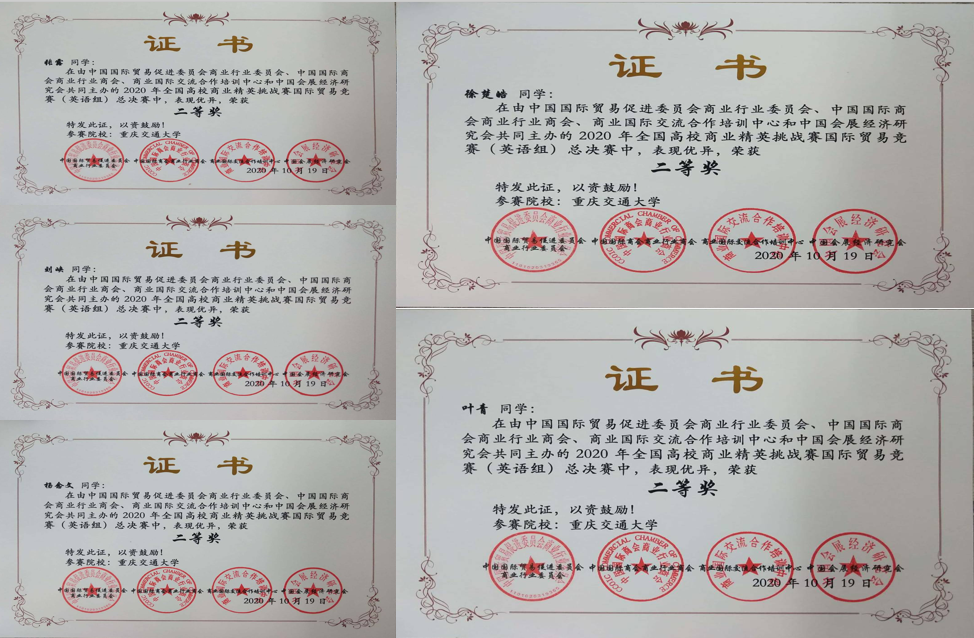 证 书
张露 同学：
在由中国国际贸易促进委员会商业行业委员会、中国国际商
会商业行业商会、商业国际交流合作培训中心和中国会展经济研
究会共同主办的 2020 年全国高校商业精英挑战赛国际贸易竞
赛（英语组）总决赛中，表现优异，荣获
二等奖
特发此证，以资鼓励！
参赛院校：重庆交通大学
中国国际贸易促进委员会 中国国际商会商业行业商会 商业国际交流合作培训中心 中国会展经济研究会
商业行业委员会
2020 年 10 月 19 日
证 书
刘 同学：
在由中国国际贸易促进委员会商业行业委员会、中国国际商
会商业行业商会、商业国际交流合作培训中心和中国会展经济研
究会共同主办的 2020 年全国高校商业精英挑战赛国际贸易竞
赛（英语组）总决赛中，表现优异，荣获
二等奖
特发此证，以资鼓励！
参赛院校：重庆交通大学
中国国际贸易促进委员会 中国国际商会商业行业商会 商业国际交流合作培训中心 中国会展经济研究会
商业行业委员会
2020 年 10 月 19 日
证 书
杨文 同学：
在由中国国际贸易促进委员会商业行业委员会、中国国际商
会商业行业商会、商业国际交流合作培训中心和中国会展经济研
究会共同主办的 2020 年全国高校商业精英挑战赛国际贸易竞
赛（英语组）总决赛中，表现优异，荣获
二等奖
特发此证，以资鼓励！
参赛院校：重庆交通大学
中国国际贸易促进委员会 中国国际商会商业行业商会 商业国际交流合作培训中心 中国会展经济研究会
商业行业委员会
2020 年 10 月 19 日
证 书
徐楚皓 同学：
在由中国国际贸易促进委员会商业行业委员会、中国国际商
会商业行业商会、商业国际交流合作培训中心和中国会展经济研
究会共同主办的 2020 年全国高校商业精英挑战赛国际贸易竞
赛（英语组）总决赛中，表现优异，荣获
二等奖
特发此证，以资鼓励！
参赛院校：重庆交通大学
中国国际贸易促进委员会 中国国际商会商业行业商会 商业国际交流合作培训中心 中国会展经济研究会
商业行业委员会
2020 年 10 月 19 日
证 书
叶青 同学：
在由中国国际贸易促进委员会商业行业委员会、中国国际商
会商业行业商会、商业国际交流合作培训中心和中国会展经济研
究会共同主办的 2020 年全国高校商业精英挑战赛国际贸易竞
赛（英语组）总决赛中，表现优异，荣获
二等奖
特发此证，以资鼓励！
参赛院校：重庆交通大学
中国国际贸易促进委员会 中国国际商会商业行业商会 商业国际交流合作培训中心 中国会展经济研究会
商业行业委员会
2020 年 10 月 19 日